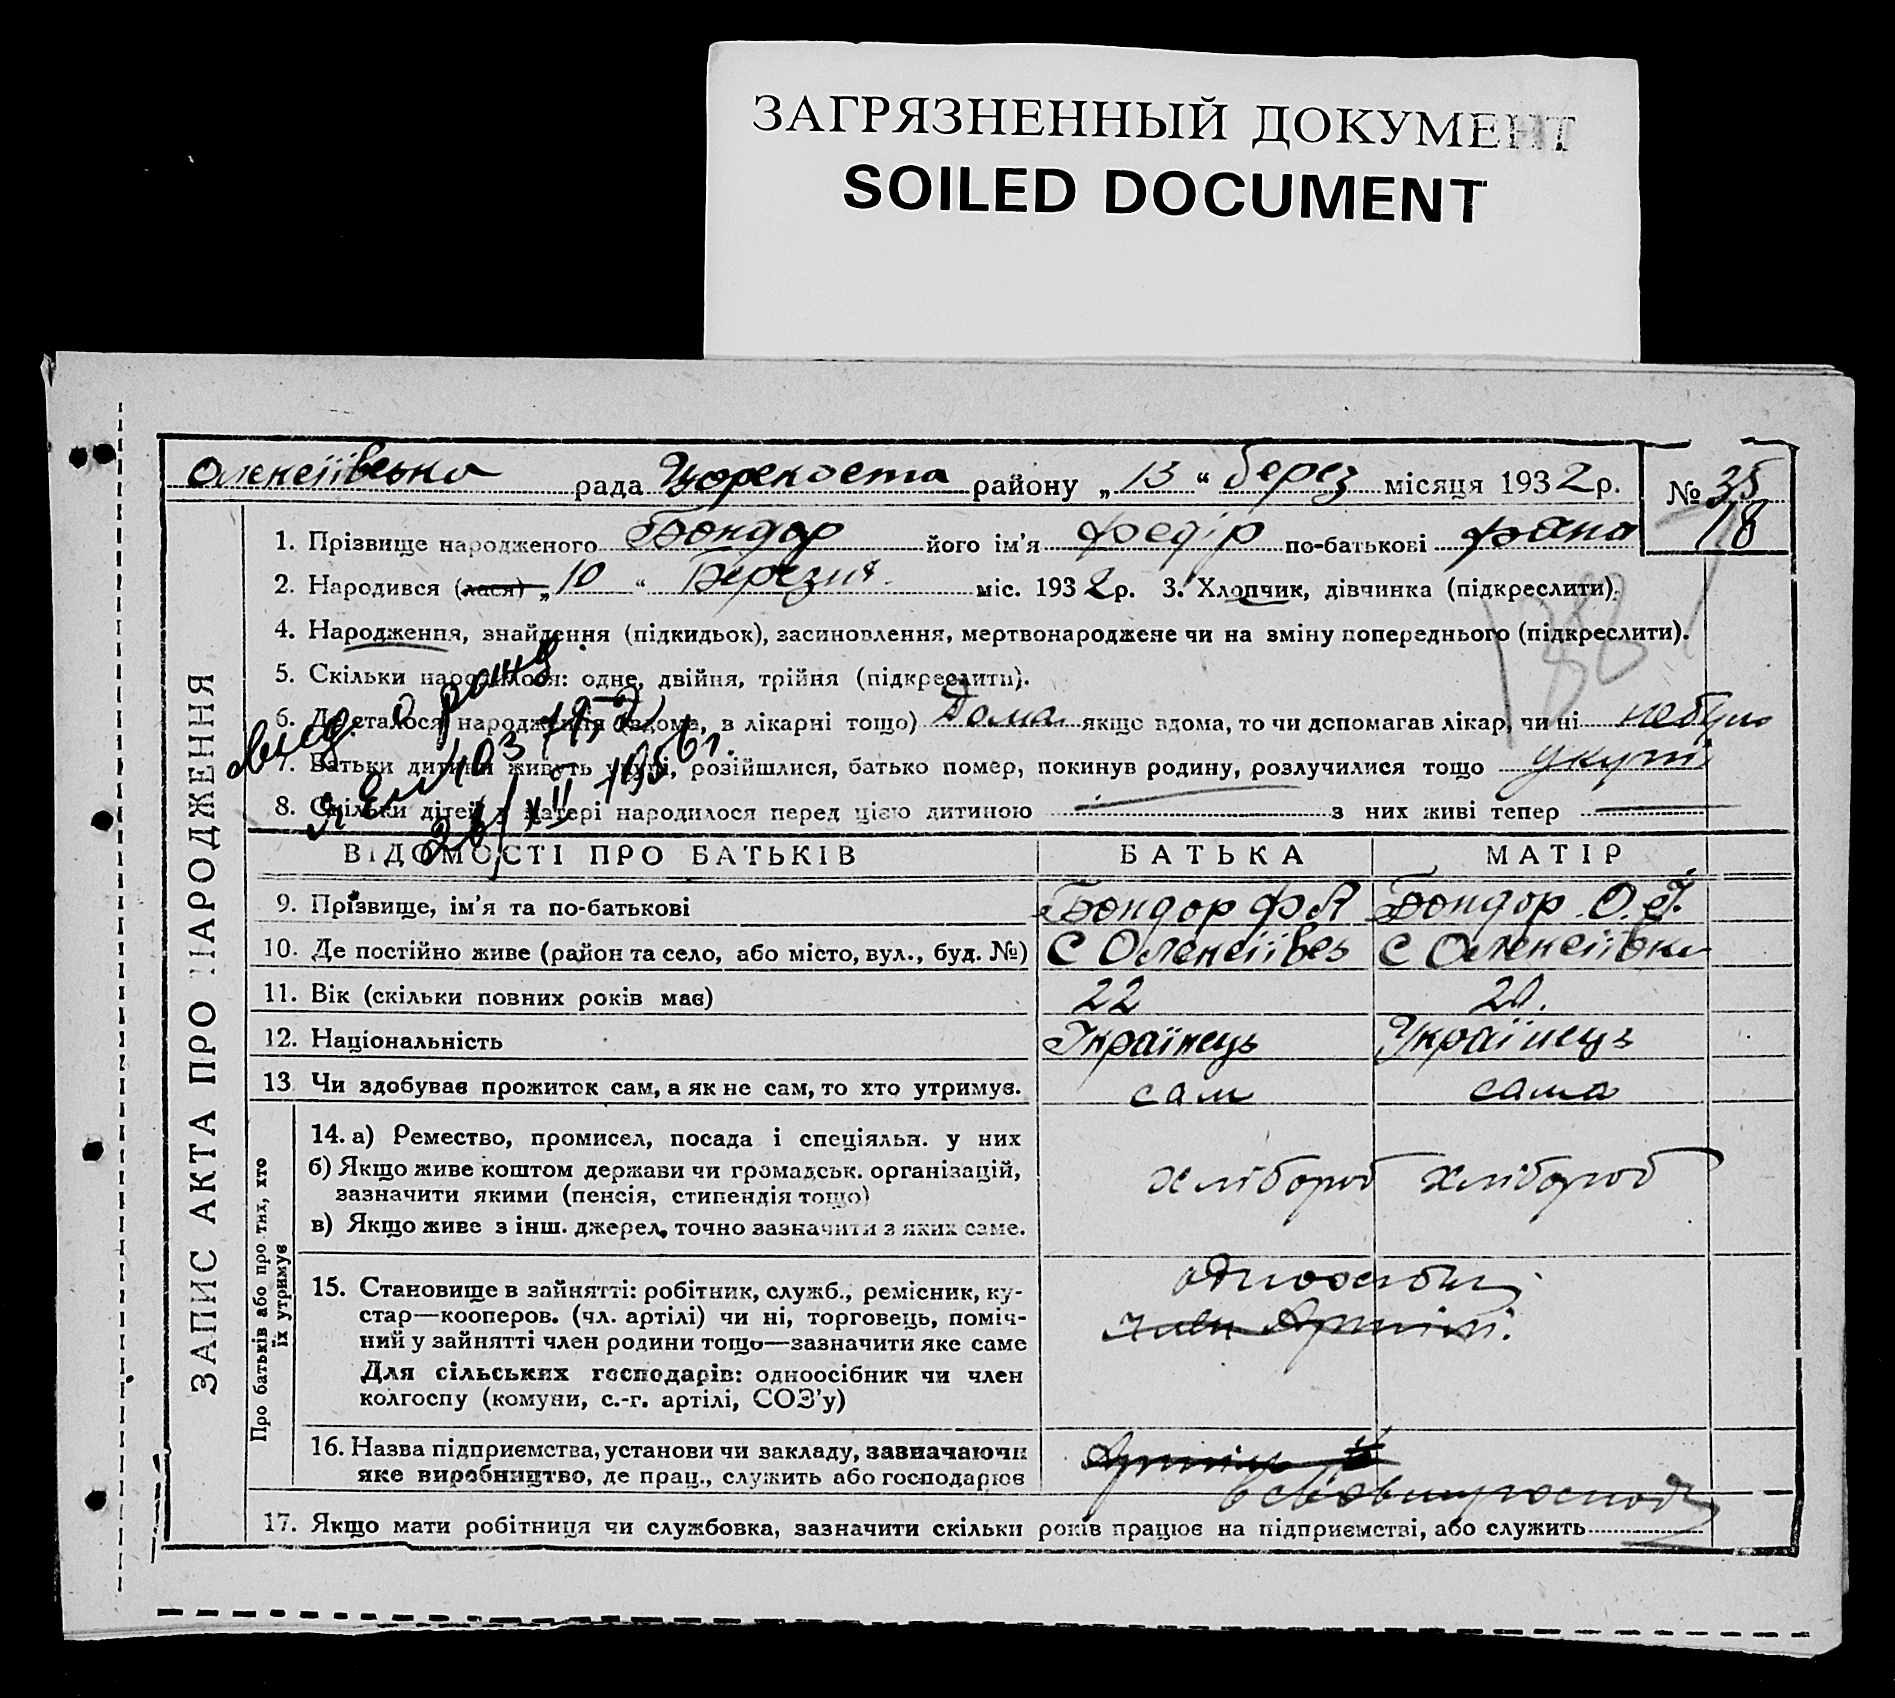 ЗАГРЯЗНЕННЫЙ ДОКУМЕНТ
SOILED DOCUMENT
Олексіївська рада району „ 13 “ берез місяця 1932 р. № 35
18
1. Прізвище народженого Бондор його ім’я Федір по-батькові
2. Народився (лася) „ 10 “ Березня міс. 1932 р. 3. Хлопчик, дівчинка (підкреслити).
4. Народження, знайдення (підкидьок), засиновлення, мертвонароджене чи на зміну попереднього (підкреслити).
188
5. Скільки народилося: одне, двійня, трійня (підкреслити).
6. Де сталося народження (вдома, в лікарні тощо) Дома якщо вдома, то чи допомагав лікар, чи ні небуло
7. Батьки дитини живуть укупі, розійшлися, батько помер, покинув родину, розлучилися тощо укупі
8. Скільки дітей у матері народилося перед цією дитиною з них живі тепер
ВІДОМОСТІ ПРО БАТЬКІВ БАТЬКА МАТІР
9. Прізвище, ім’я та по-батькові Бондор Ф Я Бондор О. Г.
10. Де постійно живе (район та село, або місто, вул., буд. №) С Олексіївка С Олексіївка
11. Вік (скільки повних років має) 22 20.
12. Національність Українець Українець
13 Чи здобуває прожиток сам, а як не сам, то хто утримує. сам сама
14. а) Ремество, промисел, посада і спеціяльн. у них
б) Якщо живе коштом держави чи громадськ. організацій,
зазначити якими (пенсія, стипендія тощо)
хлібороб хлібороб
в) Якщо живе з інш. джерел, точно зазначити з яких саме.
15. Становище в зайнятті: робітник, служб., ремісник, ку-
стар—кооперов. (чл. артілі) чи ні, торговець, поміч-
ний у зайнятті член родини тощо—зазначити яке саме
Для сільських господарів: одноосібник чи член
колгоспу (комуни, с.-г. артілі, СОЗ’у)
член Артілі.
16. Назва підприємства, установи чи закладу, зазначаючи
яке виробництво, де прац., служить або господарює
Артіль
17. Якщо мати робітниця чи службовка, зазначити скільки років працює на підприємстві, або служить
ЗАПИС АКТА ПРО НАРОДЖЕННЯ
Про батьків або про тих, хто
їх утримує
26/XII 1956 г.